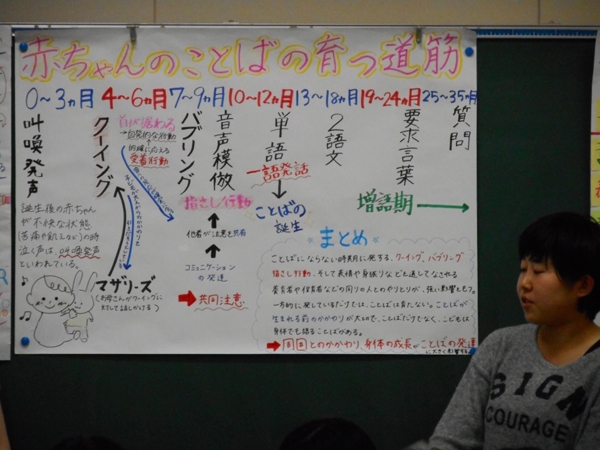 赤ちゃんのことばの育つ道筋
0〜3ヵ月
4〜6ヵ月
7〜9ヵ月
10〜12ヵ月
13〜18ヵ月
19〜24ヵ月
25〜35ヵ月
叫喚発声
クーイング
バブリング
音声模倣
単語
2語文
要求言葉
質問
首が据わる
自発的な行動
愛着行動
指さし行動
一語発話
ことばの誕生
増語期
他者が注意を共有
コミュニケーションの発達
共同注意
誕生後の赤ちゃん
が不快な状態
(苦痛や飢えなど)の時
泣く声は、叫喚発声
といわれている。
マザリーズ
(お母さんがクーイングに
対して話しかける)
まとめ
ことばにならない時期に発する、クーイング、バブリング
指さし行動、そして表情や身振りなどを通してなされる
養育者や保育者などの周りの人とのやりとりが、強い影響をもつ。
一方的に発しているだけでは、ことばは育たない。ことばが
生まれる前のかかわりが大切で、ことばだけでなく、こころも
身体でも語ることばがある。
とのかかわり、身体の成長がことばの発達
に大きく影響する
SIGN
COURAGE